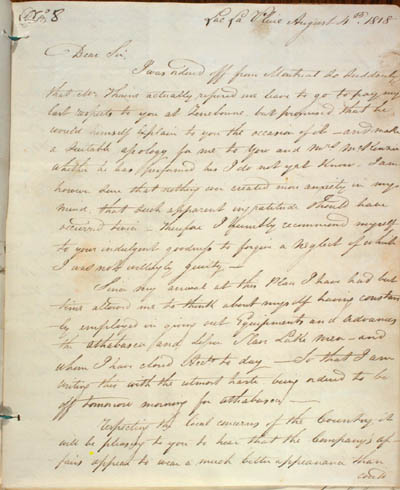 No. 8
Lac La Pluie August 4th. 1818
Dear Sir,
I was ordered off from Montreal so suddenly
that Mr. Thain actually refused me leave to go to pay my
last respects to you at Terrebonne, but promised that he
would himself explain to you the occasion of it – and make
a suitable apology for me to You and Mrs. McKenzie
whether he has performed his I do not yet know. I am
however sure that nothing ever created more anxiety in my
mind, that such apparent ingratitude should have
occurred twice – therefore I humbly recommend myself
to your indulgent goodness to forgive a Neglect of which
I was not willingly guilty. –
Since my arrival at this Place I have had but
time allowed me to think about myself having constant
ly employed in giving out Equipments and Advances
to athabasca and Rain Lake men – and
whom I have closed Accts to day – So that I am
writing this with the utmost haste being ordered to be
off tomorrow morning for athabasca –
Respecting the local concerns of the Country it
will be pleasing to you to hear that the Company's af-
fairs appear to wear a much better appearance than
could